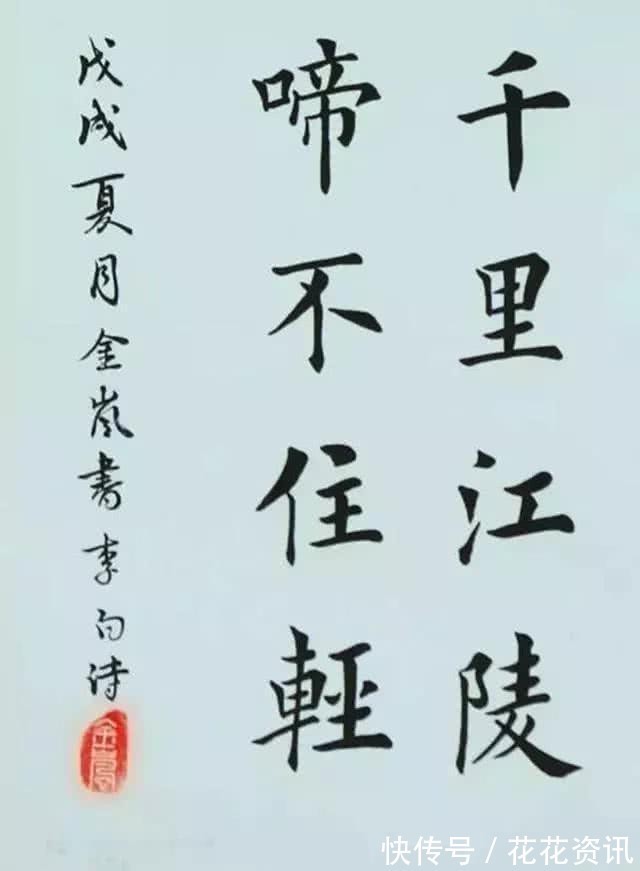 千里江陵
啼不住輕
戊戌夏月金嵐書李白詩
快传号/花花资讯